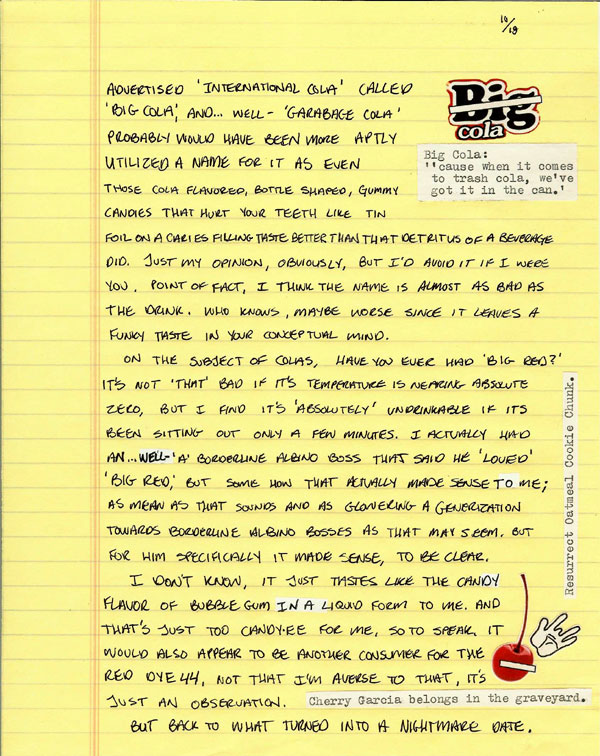 10/19
ADVERTISED 'INTERNATIONAL COLA' CALLED
'BIG COLA', AND... WELL- 'GARABAGE COLA'
PROBABLY WOULD HAVE BEEN MORE APTLY
UTILIZED A NAME FOR IT AS EVEN
THOSE COLA FLAVORED, BOTTLE SHAPED, GUMMY
CANDIES THAT HURT YOUR TEETH LIKE TIN
FOIL ON A CARIES FILLING TASTE BETTER THAN THAT DETRITUS OF A BEVERAGE
DID. JUST MY OPINION, OBVIOUSLY, BUT I'D AVOID IT IF I WERE
YOU. POINT OF FACT, I THINK THE NAME IS ALMOST AS BAD AS
THE DRINK. WHO KNOWS, MAYBE WORSE SINCE IT LEAVES A
FUNKY TASTE IN YOUR CONCEPTUAL MIND.
ON THE SUBJECT OF COLAS, HAVE YOU EVER HAD 'BIG RED?'
IT'S NOT 'THAT' BAD IF IT'S TEMPERATURE IS NEARING ABSOLUTE
ZERO, BUT I FIND IT'S 'ABSOLUTELY' UNDRINKABLE IF ITS
BEEN SITTING OUT ONLY A FEW MINUTES. I ACTUALLY HAD
AN... WELL- 'A' BORDERLINE ALBINO BOSS THAT SAID HE 'LOVED'
'BIG RED,' BUT SOME HOW THAT ACTUALLY MADE SENSE TO ME;
AS MEAN AS THAT SOUNDS AND AS GLOWERING A GENERIZATION
TOWARDS BORDERLINE ALBINO BOSSES AS THAT MAY SEEM. BUT
FOR HIM SPECIFICALLY IT MADE SENSE, TO BE CLEAR.
I DON'T KNOW, IT JUST TASTES LIKE THE CANDY
FLAVOR OF BUBBLE GUM IN A LIQUID FORM TO ME. AND
THAT'S JUST TOO CANDY-EE FOR ME, SO TO SPEAK. IT
WOULD ALSO APPEAR TO BE ANOTHER CONSUMER FOR THE
RED DYE 44, NOT THAT I'M AVERSE TO THAT, IT'S
JUST AN OBSERVATION.
BUT BACK TO WHAT TURNED INTO A NIGHTMARE DATE.
Big
cola
Big Cola:
''cause when it comes
to trash cola, we've
got it in the can.'
Resurrect Oatmeal Cookie Chunk.
Cherry Garcia belongs in the graveyard.